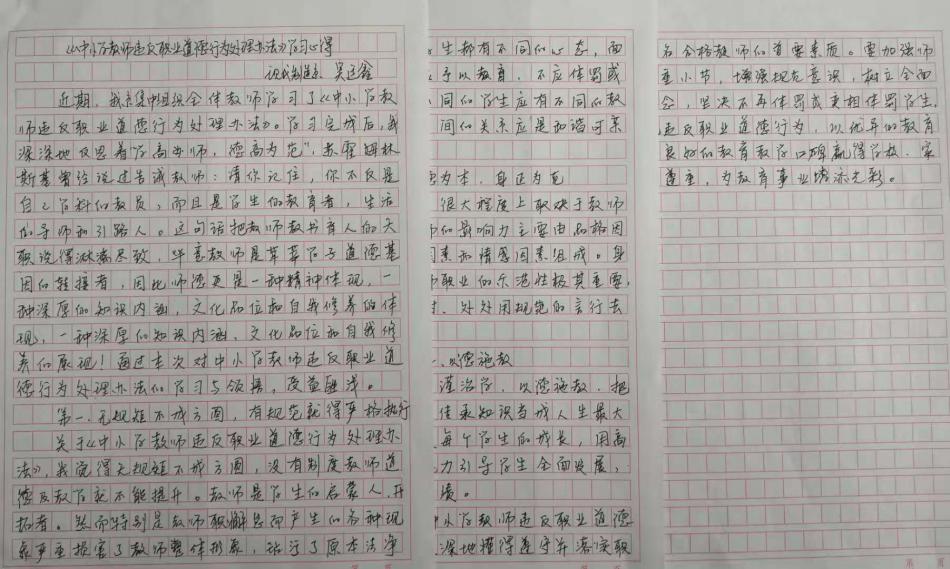 《中小学教师违反职业道德行为处理办法》学习心得
近期，我系集中组织全体教师学习了《中小学教
师违反职业道德行为处理办法》。学习完成后，我
深深地反思着“学高为师，德高为范”，苏霍姆林
斯基曾经说过告诫教师：请你记住，你不仅是
自己学科的教员，而且是学生的教育者，生活
的导师和引路人。这句话把教师教书育人的天
职说得淋漓尽致，毕竟教师是莘莘学子道德基
因的转接者，因此师德更是一种精神体现，一
种深厚的知识内涵，文化品位和自我修养的体
现，一种深厚的知识内涵、文化品位和自我修
养的展现！通过本次对中小学教师违反职业道
德行为处理办法的学习与领悟，受益匪浅。
第一、无规矩不成方圆，有规范就得严格执行
关于《中小学教师违反职业道德行为处理办
法》，我觉得无规矩不成方圆，没有制度教师道
德及教学就不能提升。教师是学生的启蒙人、开
拓者。然而特别是教师职解怠而产生的各种现
象严重损害了教师整体形象，玷污了原本洁净
生都有不同的心态，面
予以教育，不应体罚或
同的学生应有不同的教
间的关系应是和谐可亲
为本，身正为范
很大程度上取决于教师
的影响力主要由品格因
素和情感因素组成。身
职业的示范性极其重要，
处处用规范的言行去
、以德施教
谨治学，以德施教，把
传承知识当成人生最大
每个学生的成长，用高
力引导学生全面发展，
绩。
小学教师违反职业道德
深地懂得遵守并落实职
名合格教师的首要素质。要加强师
重小节，增强规范意识，树立全面
念，坚决不再体罚或变相体罚学生，
违反职业道德行为，以优异的教育
良好的教育教学口碑赢得学校、家
尊重，为教育事业增添光彩。